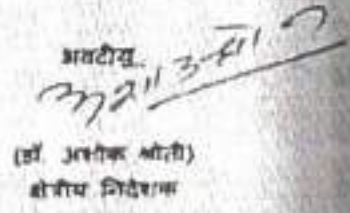 भवदीय
(डॉ. अशोक श्रोती)
क्षेत्रीय निदेशक